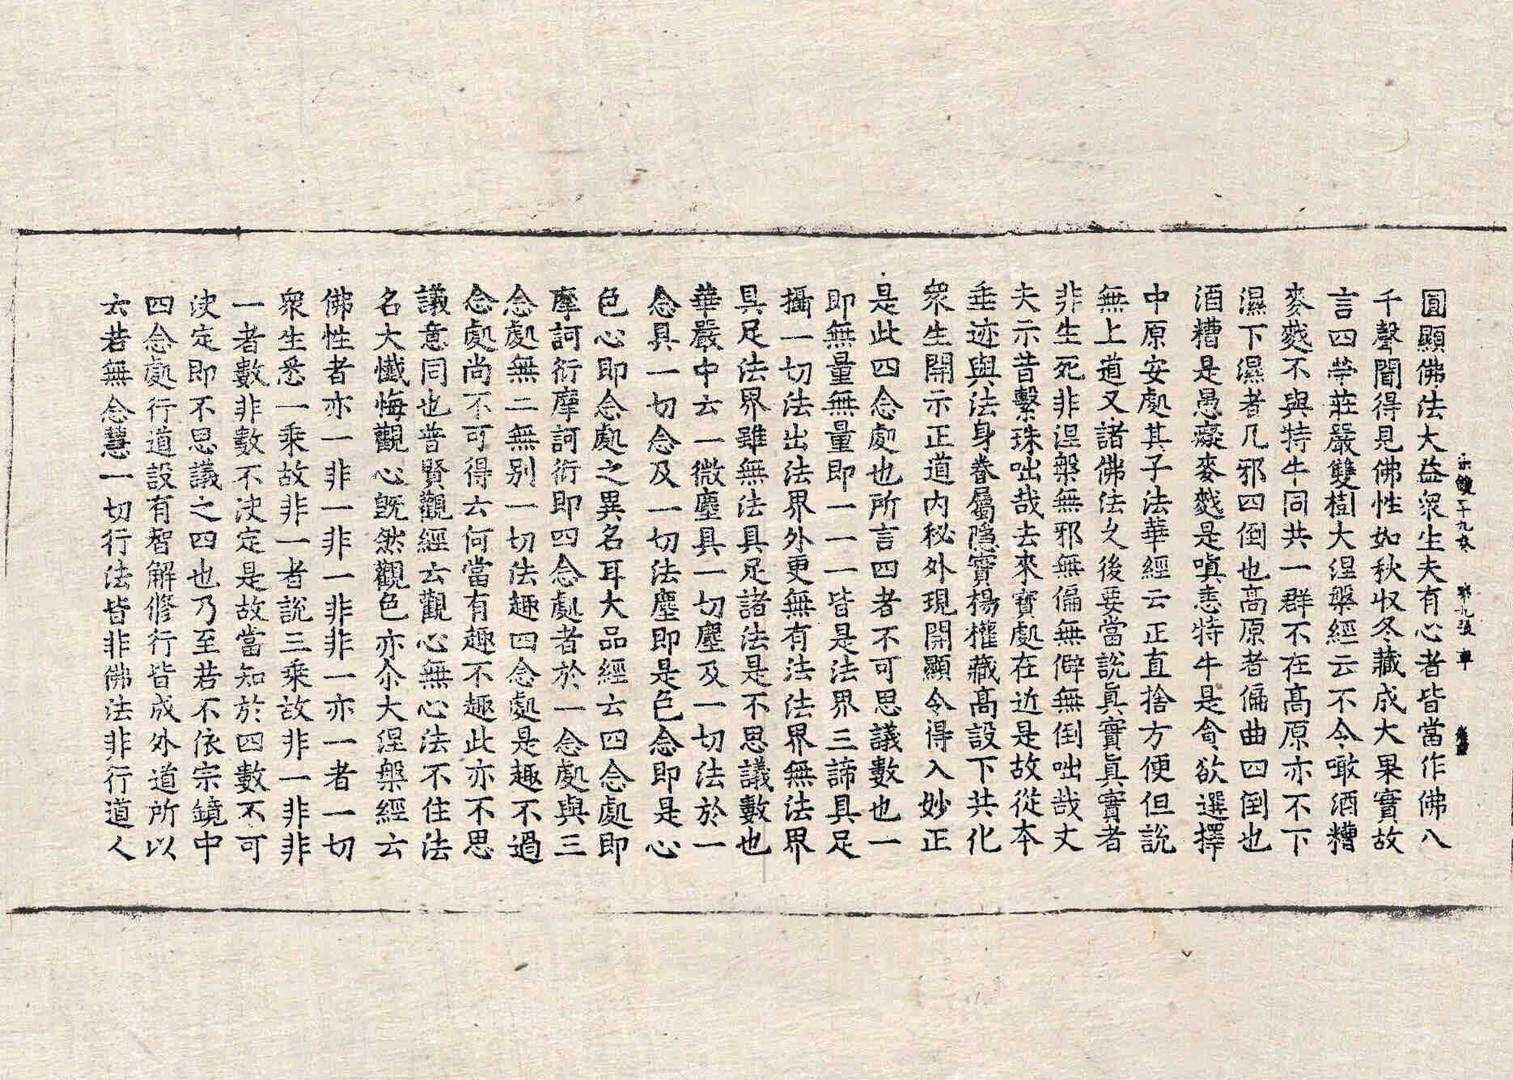 圓顯佛法大益衆生夫有心者皆當作佛八
千聲聞得見佛性如秋収冬藏成大果實故
言四等莊嚴雙樹大涅槃經云不令噉酒糟
麥䴬不與特牛同共一群不在髙原亦不下
濕下濕者凡邪四倒也髙原者偏曲四倒也
酒糟是愚癡麥䴬是嗔恚特牛是貪欲選擇
中原安處其子法華經云正直捨方便但說
無上道又諸佛法久後要當說眞實眞實者
非生死非涅槃無邪無偏無僻無倒咄哉丈
夫示昔繫珠咄哉去來寳處在近是故從本
垂迹與法身眷屬隱實揚權藏髙設下共化
衆生開示正道内秘外現開顯令得入妙正
是此四念處也所言四者不可思議數也一
即無量無量即一一一皆是法界三諦具足
攝一切法出法界外更無有法法界無法界
具足法界雖無法具足諸法是不思議數也
華嚴中云一微塵具一切塵及一切法於一
念具一切念及一切法塵即是色念即是心
色心即念處之異名耳大品經云四念處即
摩訶衍摩訶衍即四念處者於一念處與三
念處無二無别一切法趣四念處是趣不過
念處尚不可得云何當有趣不趣此亦不思
議意同也普賢觀經云觀心無心法不住法
名大懺悔觀心旣然觀色亦尒大涅槃經云
佛性者亦一非一非一非非一亦一者一切
衆生悉一乘故非一者說三乘故非一非非
一者數非數不决定是故當知於四數不可
决定即不思議之四也乃至若不依宗鏡中
四念處行道設有智解修行皆成外道所以
云若無念慧一切行法皆非佛法非行道人